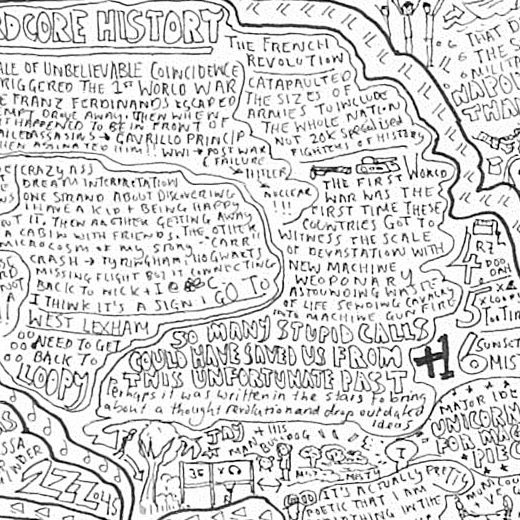 RDCORE HISTORY
ALE OF UNBELIEVABLE COINCIDENCE
RIGGERED THE 1ST WORLD WAR
FRANZ FERDINANDS ESCAPED
DROVE AWAY, THEN WHEN
HAPPENED TO BE IN FRONT OF
ASSASSIN GAVRILLO PRINCIP
HIM!! WWI + POST WAR
FAILURE
→ HITLER
→ NUCLEAR
!!!
THE FRENCH
REVOLUTION
CATAPAULTED
THE SIZES OF
ARMIES TO INCLUDE
THE WHOLE NATION
NOT 20K SPECIALISED
FIGHTERS OF HISTORY
THE FIRST WORLD
WAR WAS THE
FIRST TIME THESE
COUNTRIES GOT TO
WITNESS THE SCALE
OF DEVASTATION WITH
NEW MACHINE
WEOPONARY
ASTOUNDING WASTE
OF LIFE SENDING CAVALRY
INTO MACHINE GUN FIRE
CRAZY ASS
DREAM INTERPRETATION
ONE STRAND ABOUT DISCOVERING
I HAVE A KID + BEING HAPPY
UT IT, THEN ANOTHER GETTING AWAY
A CABIN WITH FRIENDS. THE OTHER
MICROCOSM OF MY STORY - "CARR
CRASH → TYRINGHAM, HOGWARTS
MISSING FLIGHT BUT IT CONNECTING
BACK TO NICK + I
I THINK IT'S A SIGN I GO TO
WEST LEXHAM
NEED TO GET
BACK TO
LOOPY
SO MANY STUPID CALLS
COULD HAVE SAVED US FROM
THIS UNFORTUNATE PAST
+1
Perhaps it was written in the stars to bring
about a thought revolution and drop outdated
ideas
THAT D
THE S
MILIT
NAPOL
THAN
4
DOO
DAH
5
6
SUNSET
MIS
MAJOR IDE
UNICORN
FOR MAG
PIEC
JAY
+ THIS
MAN + BULLDOG
35
MISTY
I
IT'S ACTUALLY PRETTY
POETIC THAT I AM
THING IN THE
ZZZ